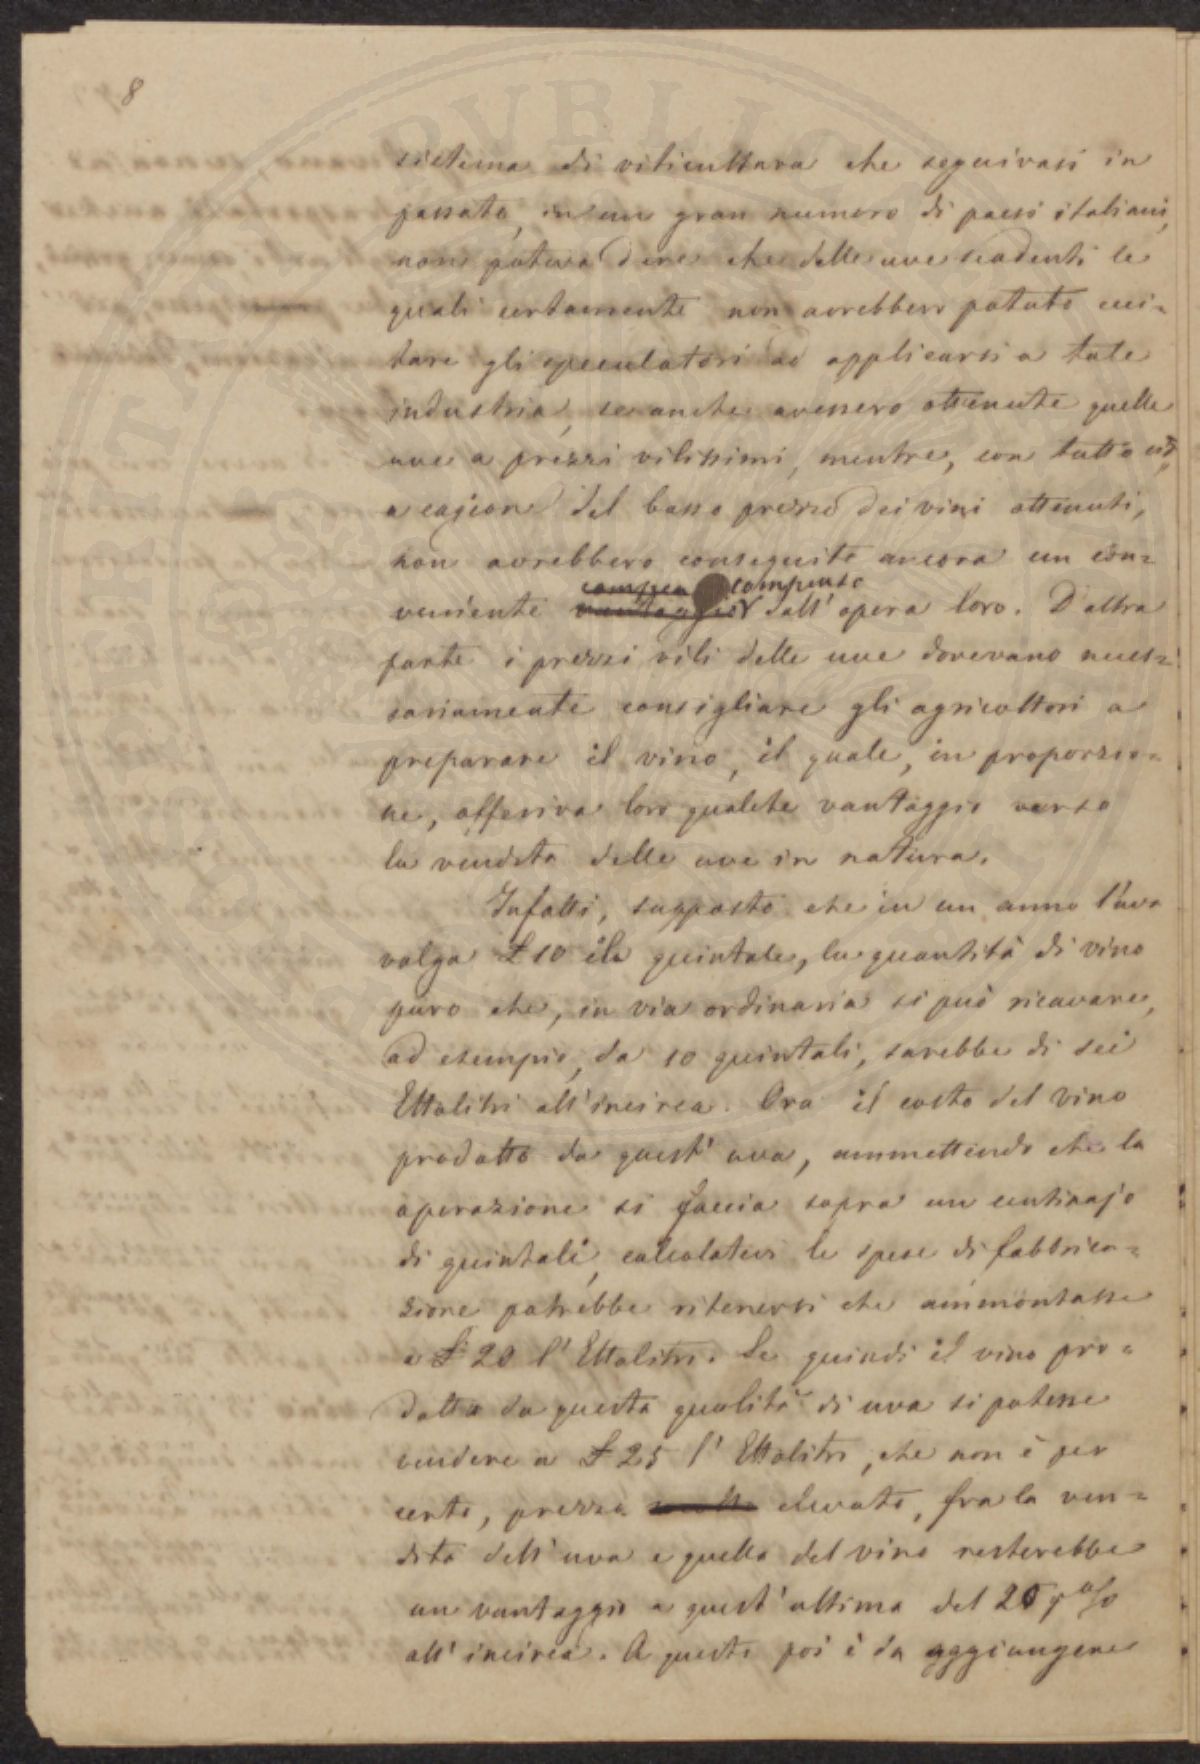 8
sistema di viticultura che seguivasi in
passato, in un gran numero di paesi italiani,
non poteva dare che delle uve scadenti le
quali certamente non avrebbero potuto ecci-
tare gli speculatori ad applicarsi a tale
industria, se anche avessero ottenute quelle
uve a prezzi vilissimi, mentre, con tutto ciò,
a cagion del basso prezzo dei vini ottenuti,
non avrebbero conseguito ancora un con-
compenso
veniente vantaggio dall'opera loro. D'altra
parte i prezzi vili delle uve dovevano neces-
sariamente consigliare gli agricoltori a
preparare il vino, il quale, in proporzio-
ne, offeriva loro qualche vantaggio verso
la vendita delle uve in natura.
Infatti, supposto che in un anno l'uva
valga £ 10 il quintale, la quantità di vino
puro che, in via ordinaria si può ricavare,
ad esempio, da 10 quintali, sarebbe di sei
Ettolitri all'incirca. Ora il costo del vino
prodotto da quest'uva, ammettendo che la
operazione si faccia sopra un centinajo
di quintali, calcolatevi le spese di fabbrica-
zione potrebbe ritenersi che ammontasse
a £ 20 l'Ettolitro. Se quindi il vino pro-
dotto da questa qualità di uva si potesse
vendere a £ 25 l'Ettolitro, che non è per
certo, prezzo elevato, fra la ven-
dita dell'uva e quella del vino resterebbe
un vantaggio a quest'ultima del 20 p %
all'incirca. A questo poi è da aggiungere